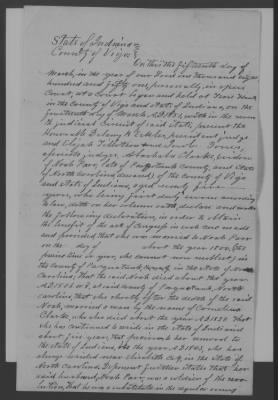 State of Indiana
County of Vigo
On this the fifteenth day of
March, in the year of our Lord one thousand eight
hundred and fifty one, personally, in open
Court, at a Court began and held at Terre Haute
in the County of Vigo and State of Indiana, on the
day of March A.D. 1851, within the
judicial circuit of said state, present the
Honorable Delany R. Eckles, president judge
and Elijah Tillotson and
associate judges, Clarke, widow
of Noah Parr, late of County and State
of North Carolina deceased of the County of Vigo
and State of Indiana, aged seventy five
years, who being first duly sworn according
to law, doth on her solemn oath, declare and make
the following declaration, in order to obtain
the benefit of the act of Congress in such case made
and provided that she was married to Noah Parr
on the day of about the year 1800, (the
precise time or year, she cannot now recollect) in
the county of Pasquotank County, in the state of North
Carolina; that the said Noah died about the year
A.D. 1802 at said county of Pasquotank, North
Carolina, that shortly after the death of the said
Noah, married a man by the name of Cornelius
Clarke, who also died about the year A.D. 1838. That
she has continued to reside in the state of Indiana
about five year, that previous to her removal to
the state of Indiana, in the year A.D. 184, she has
always resided near Elizabeth City, in the state of
North Carolina. Deponent further states that her
said husband, Noah Parr, was a soldier of the revo-
lution, that he was a substitute in the regular army